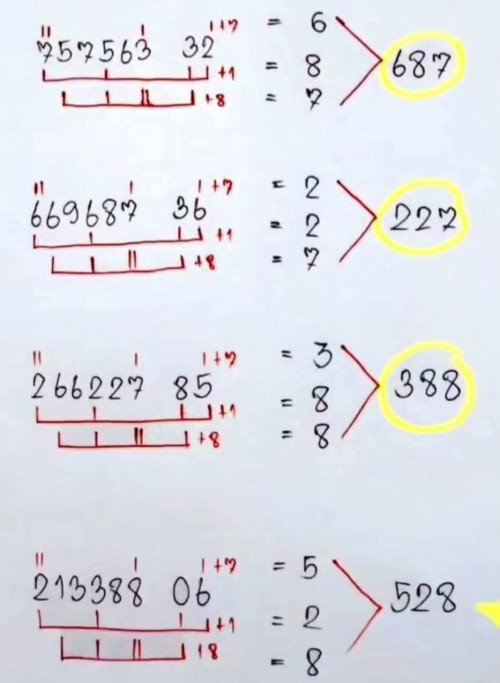 +7 = 6
757563 32 687
+1 = 8
+8 = 7
+7 = 2
669687 36 227
+1 = 2
+8 = 7
+7 = 3
266227 85 388
+1 = 8
+8 = 8
+7 = 5
213388 06 528
+1 = 2
+8 = 8